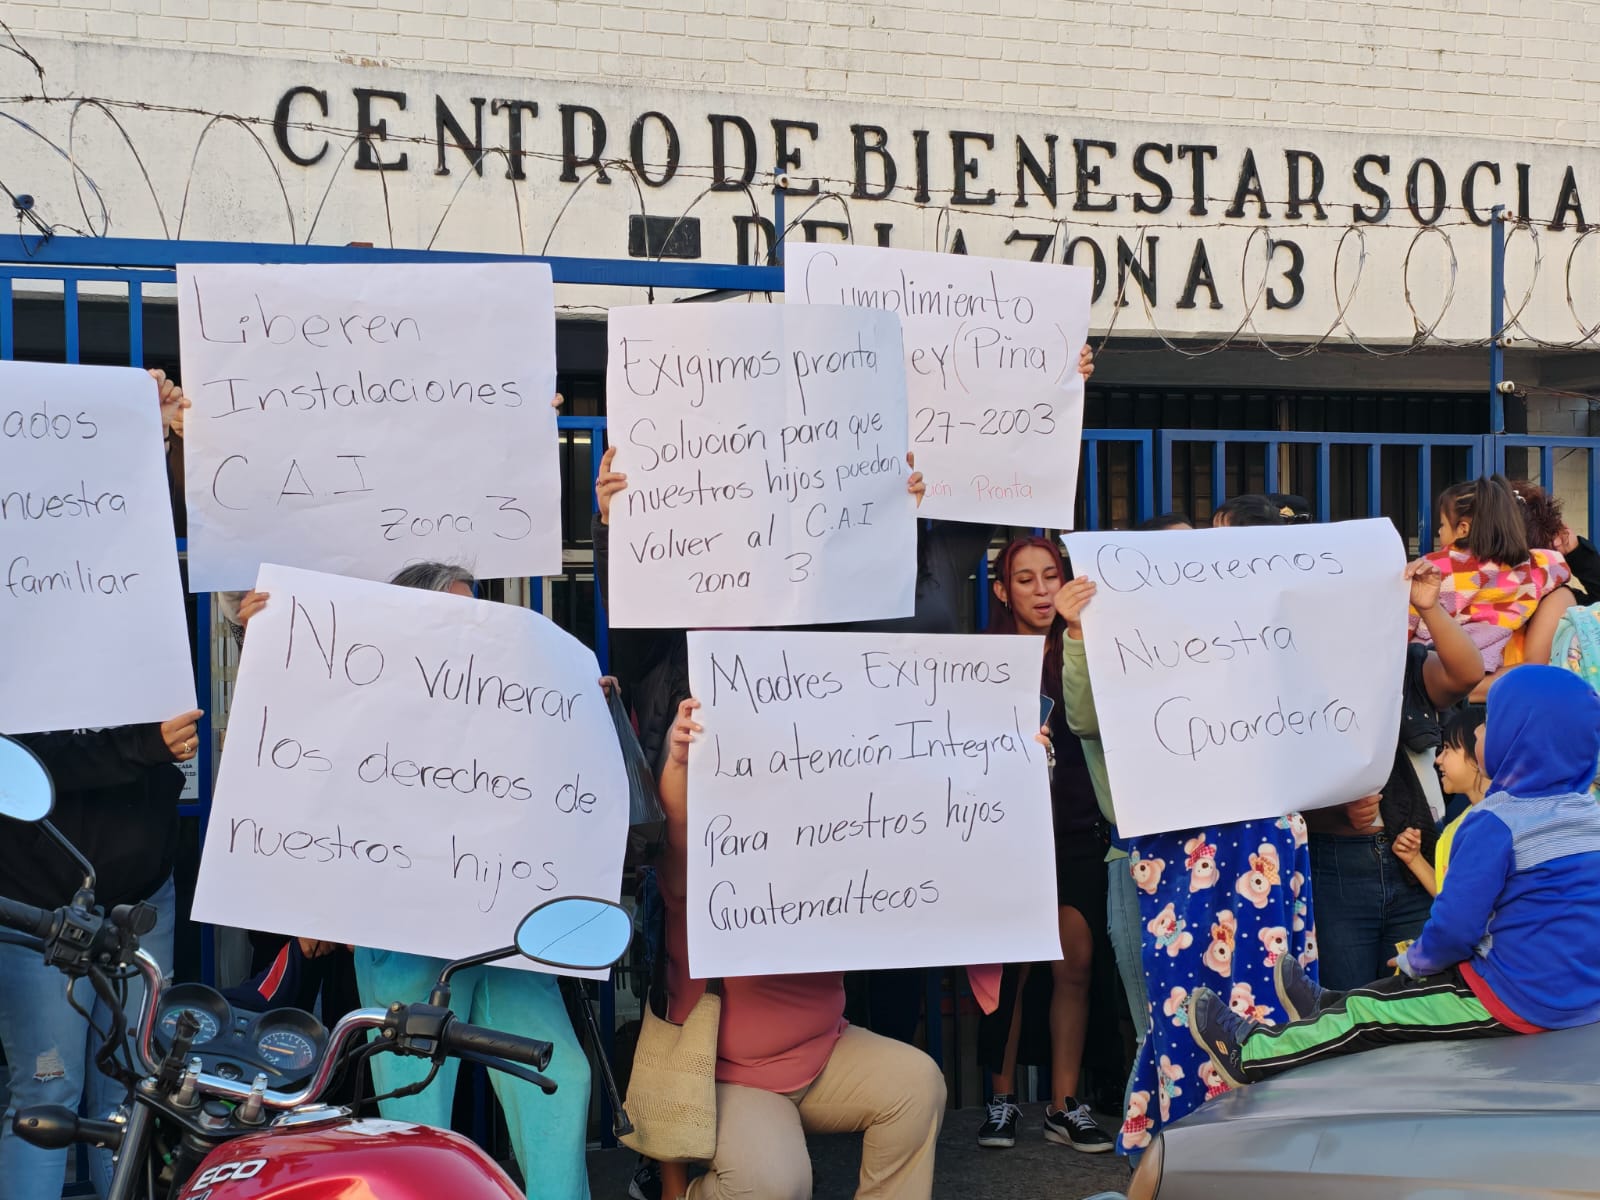 CENTRO DE BIENESTAR SOCIA
DE LA ZONA 3
ados
nuestra
familiar
Liberen
Instalaciones
C.A.I
Zona 3
Exigimos pronta
Solución para que
nuestros hijos puedan
Volver al C.A.I
zona 3.
Cumplimiento
ey (Pina)
27-2003
ión Pronta
No vulnerar
los derechos de
nuestros hijos
Madres Exigimos
La atención Integral
Para nuestros hijos
Guatemaltecos
Queremos
Nuestra
Guardería
ECO